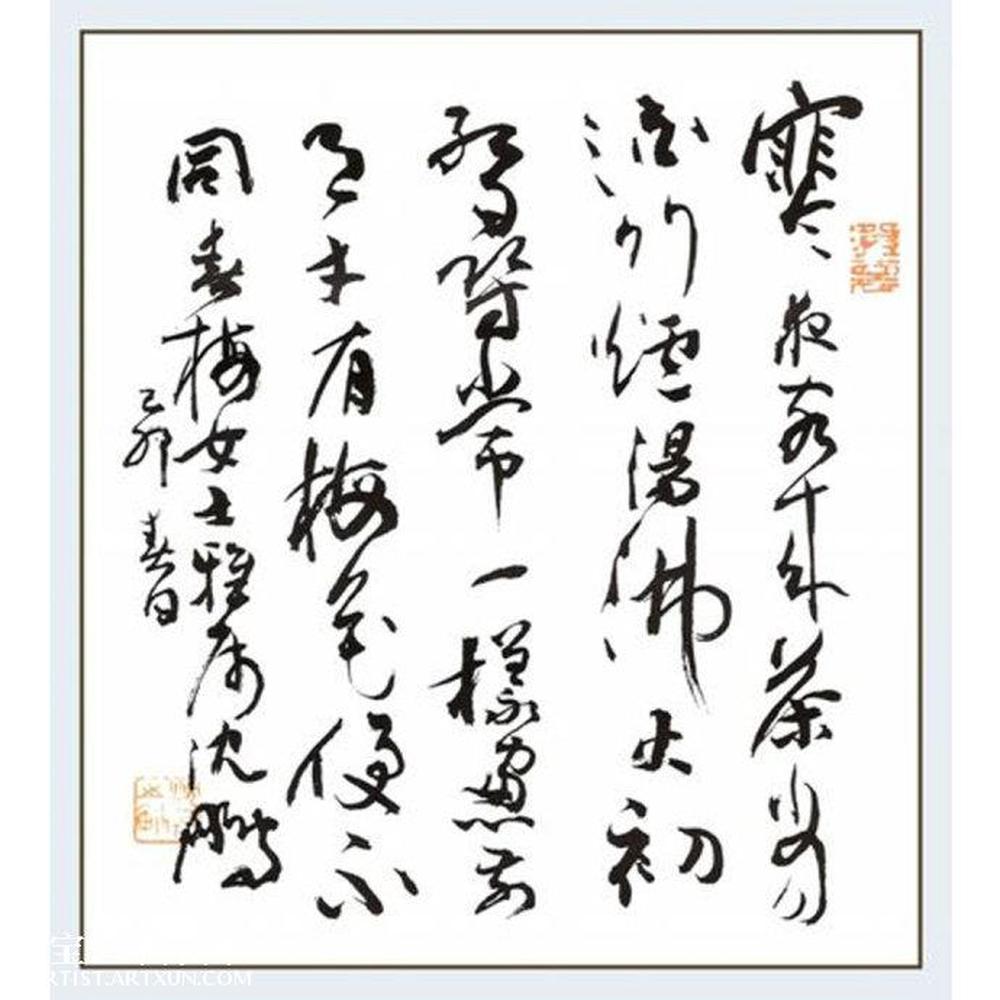 寒夜客来茶当
酒竹爐湯沸火初
紅尋常一樣窗前
月才有梅花便不
同春梅女士雅属沈鹏
己卯春日
RTIST.ARTXUN.COM